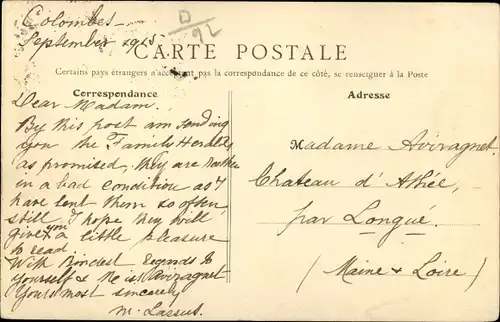 Colombes
September 1915
D/92
CARTE POSTALE
Certains pays étrangers n'acceptant pas la correspondance de ce côté, se renseigner à la Poste
Correspondance
Dear Madam.
By this post am sending
you the Family Heralds
as promised, they are rather
in a bad condition as I
have lent them so often,
still I hope they will
give you a little pleasure
to read.
With Kindest regards to
yourself & Aviragnet
Yours most sincerely
M. Lassus.
Adresse
Madame Aviragnet
Chateau d'Athée,
par Longué.
(Maine & Loire)